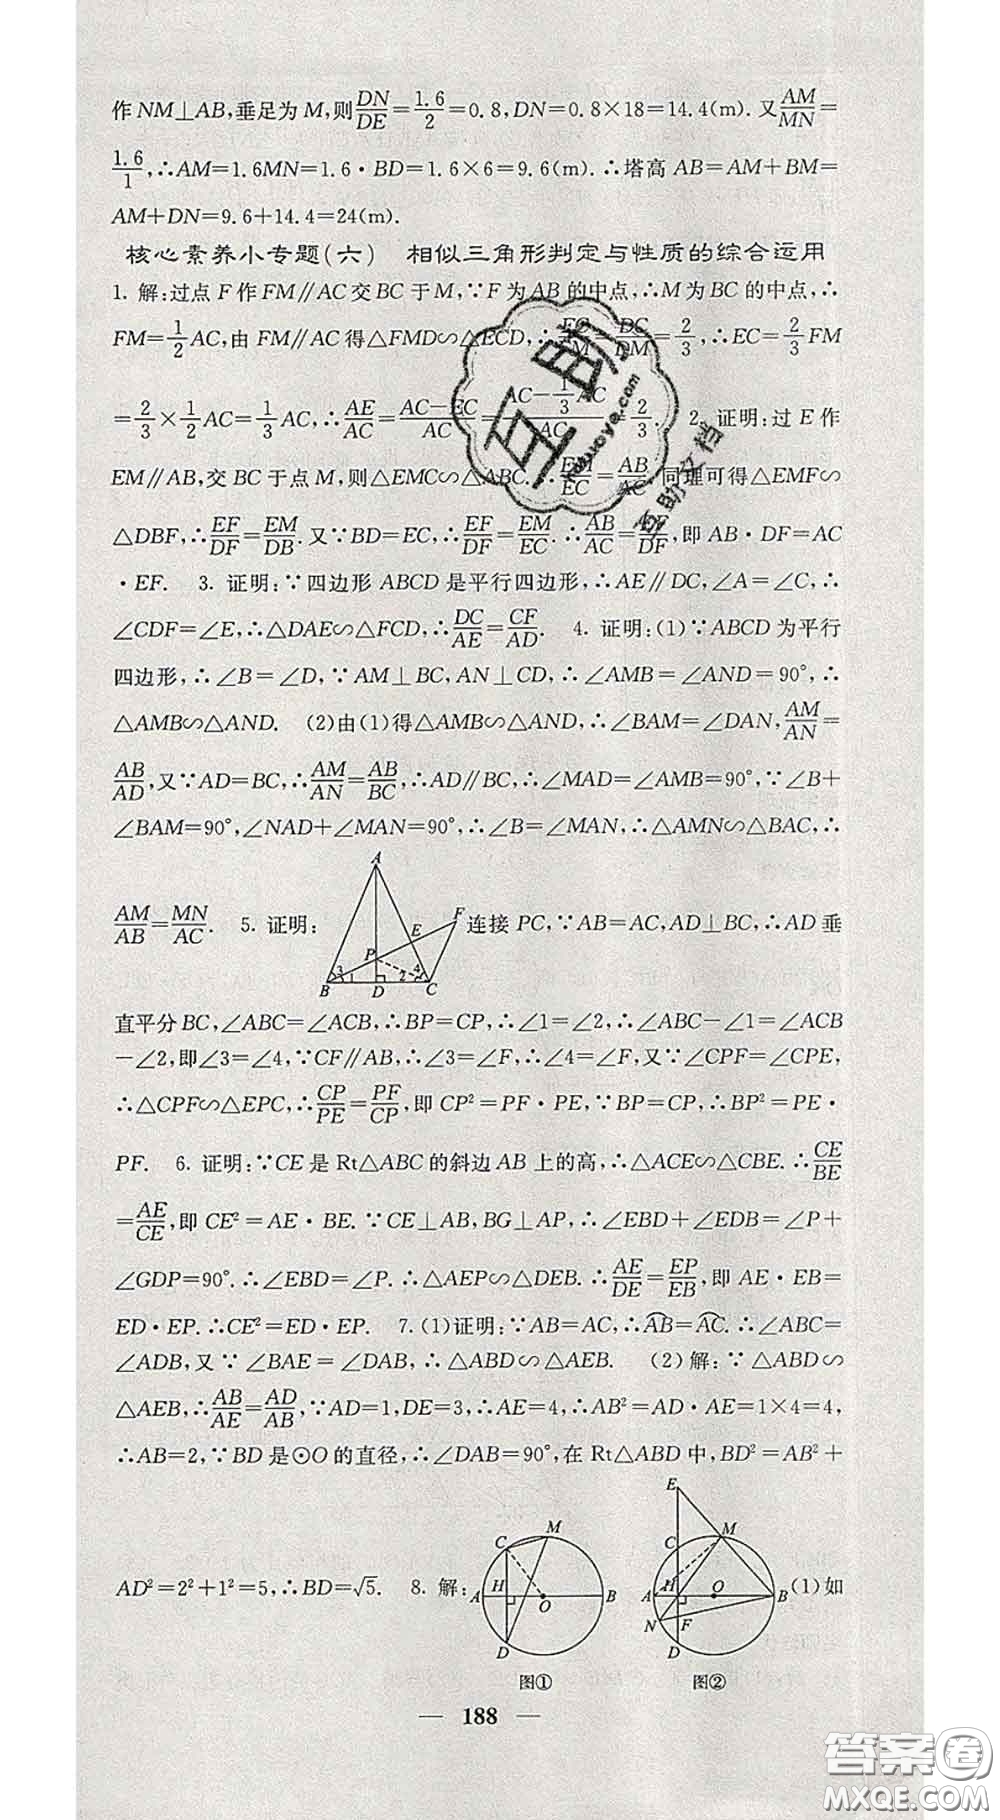 作NM⊥AB,垂足为M,则DN/DE=1.6/2=0.8,DN=0.8×18=14.4(m).又AM/MN=
1.6/1,∴AM=1.6MN=1.6·BD=1.6×6=9.6(m).∴塔高AB=AM+BM=
AM+DN=9.6+14.4=24(m).
核心素养小专题(六) 相似三角形判定与性质的综合运用
1. 解:过点F作FM∥AC交BC于M,∵F为AB的中点,∴M为BC的中点,∴
FM=1/2AC,由FM∥AC得△FMD∽△ECD,∴EC/FM=DC/DM=2/3,∴EC=2/3FM
=2/3×1/2AC=1/3AC,∴AE/AC=(AC-EC)/AC=(AC-1/3AC)/AC=2/3. 2. 证明:过E作
EM∥AB,交BC于点M,则△EMC∽△ABC.∴EM/EC=AB/AC,同理可得△EMF∽
△DBF,∴EF/DF=EM/DB.又∵BD=EC,∴EF/DF=EM/EC.∴AB/AC=EF/DF,即AB·DF=AC
·EF. 3. 证明:∵四边形ABCD是平行四边形,∴AE∥DC,∠A=∠C,∴
∠CDF=∠E,∴△DAE∽△FCD,∴DC/AE=CF/AD. 4. 证明:(1)∵ABCD为平行
四边形,∴∠B=∠D,∵AM⊥BC,AN⊥CD,∴∠AMB=∠AND=90°,∴
△AMB∽△AND. (2)由(1)得△AMB∽△AND,∴∠BAM=∠DAN,AM/AN=
AB/AD,又∵AD=BC,∴AM/AN=AB/BC,∴AD∥BC,∴∠MAD=∠AMB=90°,∵∠B+
∠BAM=90°,∠NAD+∠MAN=90°,∴∠B=∠MAN,∴△AMN∽△BAC,∴
AM/AB=MN/AC. 5. 证明: A B C D E F P 1 2 3 4 连接PC,∵AB=AC,AD⊥BC,∴AD垂
直平分BC,∠ABC=∠ACB,∴BP=CP,∴∠1=∠2,∴∠ABC-∠1=∠ACB
-∠2,即∠3=∠4,∵CF∥AB,∴∠3=∠F,∴∠4=∠F,又∵∠CPF=∠CPE,
∴△CPF∽△EPC,∴CP/PE=PF/CP,即CP²=PF·PE,∵BP=CP,∴BP²=PE·
PF. 6. 证明:∵CE是Rt△ABC的斜边AB上的高,∴△ACE∽△CBE.∴CE/BE
=AE/CE,即CE²=AE·BE.∵CE⊥AB,BG⊥AP,∴∠EBD+∠EDB=∠P+
∠GDP=90°.∴∠EBD=∠P.∴△AEP∽△DEB.∴AE/DE=EP/EB,即AE·EB=
ED·EP.∴CE²=ED·EP. 7. (1)证明:∵AB=AC,∴⌒AB=⌒AC.∴∠ABC=
∠ADB,又∵∠BAE=∠DAB,∴△ABD∽△AEB. (2)解:∵△ABD∽
△AEB,∴AB/AE=AD/AB,∵AD=1,DE=3,∴AE=4,∴AB²=AD·AE=1×4=4,
∴AB=2,∵BD是⊙O的直径,∴∠DAB=90°,在Rt△ABD中,BD²=AB²+
AD²=2²+1²=5,∴BD=√5. 8. 解: C M A H O B D E M C A H O B N F D (1)如
图① 图②
— 188 —
互助
huzuoye.com
互助文档
答案圈
MXQE.COM